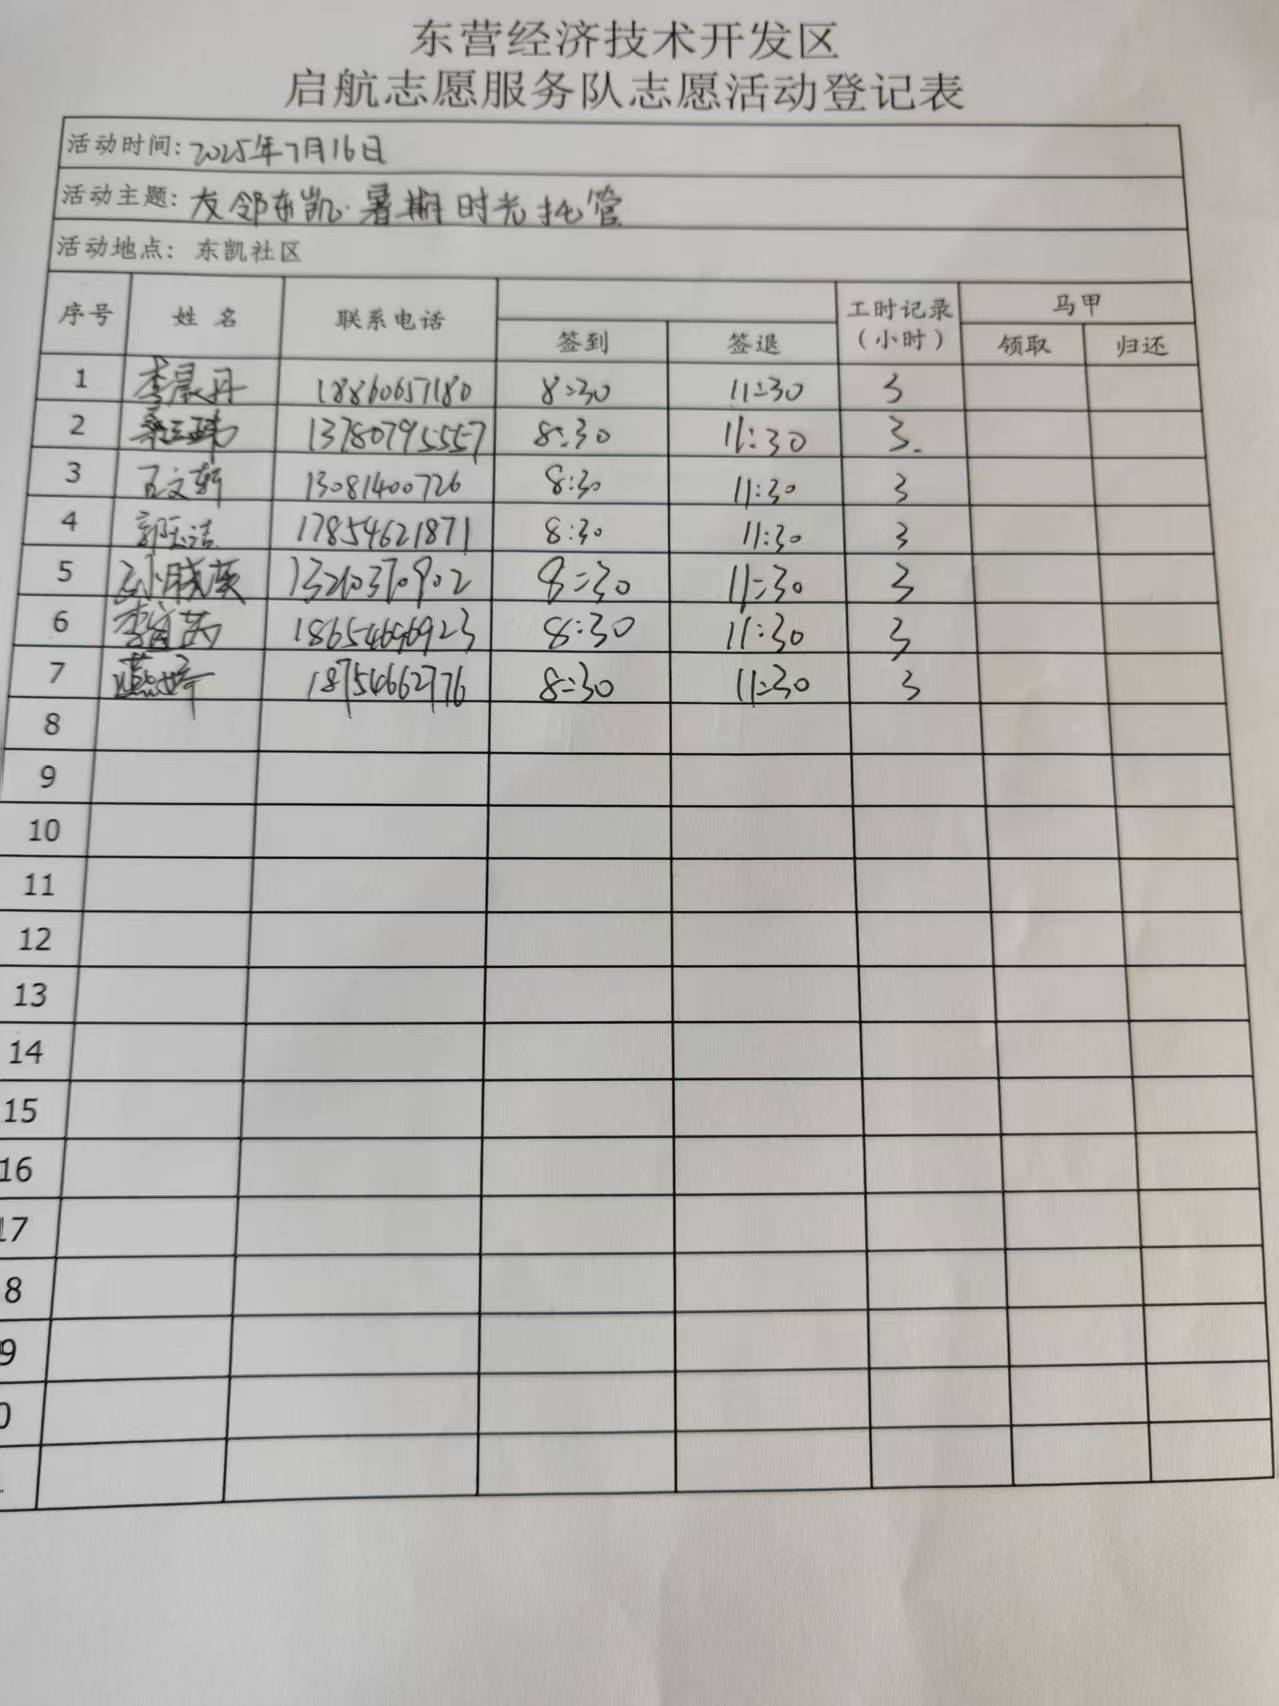 东营经济技术开发区
启航志愿服务队志愿活动登记表
活动时间: 2025年7月16日
活动主题: 友邻东凯·暑期时光托管
活动地点: 东凯社区
序号 姓名 联系电话 签到 签退 工时记录(小时) 马甲 领取 归还
1 李晨丹 18860657180 8:30 11:30 3
2 13780795557 8:30 11:30 3.
3 王文轩 13081400726 8:30 11:30 3
4 郭玉洁 17854621871 8:30 11:30 3
5 孙晓英 13210370902 8:30 11:30 3
6 18654696923 8:30 11:30 3
7 燕婷 18754662776 8:30 11:30 3
8
9
10
11
12
13
14
15
16
17
8
9
0